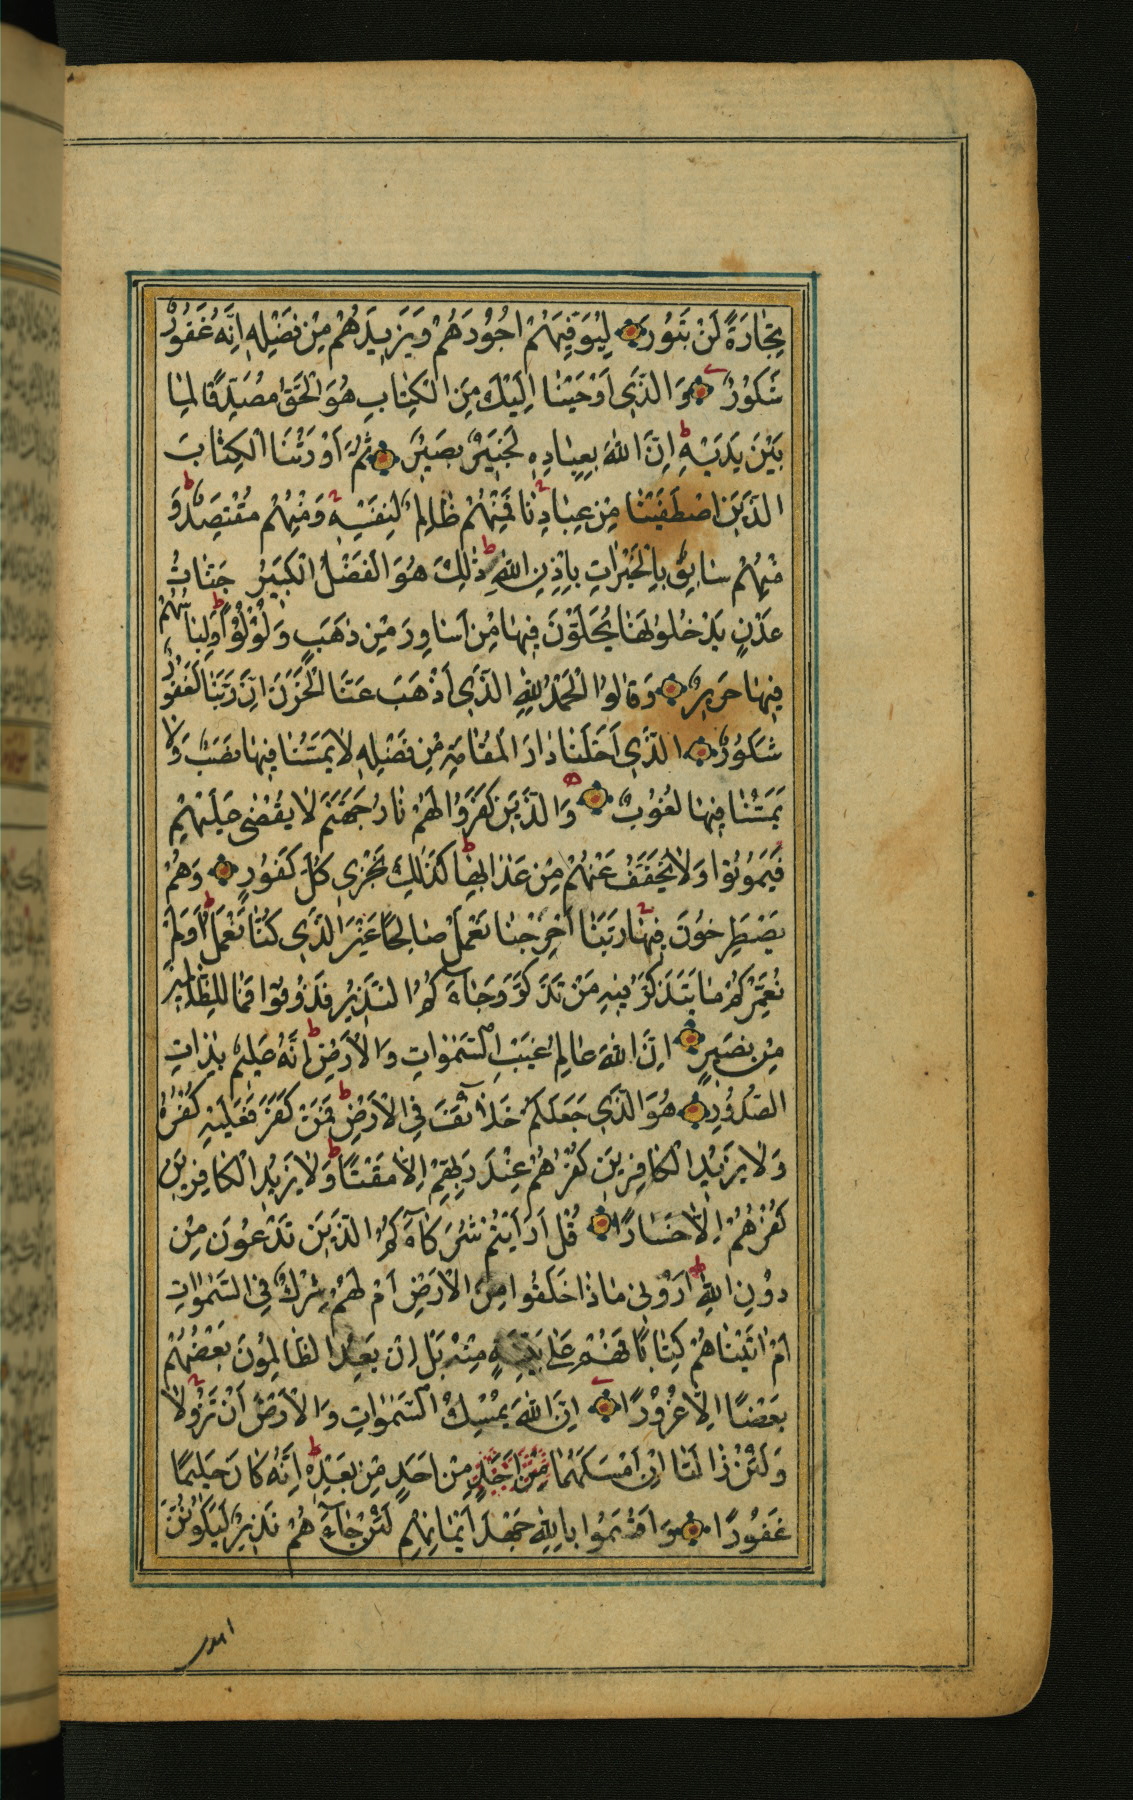 تِجَارَةً لَنْ تَبُورَ لِيُوَفِّيَهُمْ اُجُورَهُمْ وَيَزِيدَهُمْ مِنْ فَضْلِهِ اِنَّهُ غَفُورٌ
شَكُورٌ وَالَّذِي اَوْحَيْنَا اِلَيْكَ مِنَ الْكِتَابِ هُوَ الْحَقُّ مُصَدِّقًا لِمَا
بَيْنَ يَدَيْهِ اِنَّ اللهَ بِعِبَادِهِ لَخَبِيرٌ بَصِيرٌ ثُمَّ اَوْرَثْنَا الْكِتَابَ
الَّذِينَ اصْطَفَيْنَا مِنْ عِبَادِنَا فَمِنْهُمْ ظَالِمٌ لِنَفْسِهِ وَمِنْهُمْ مُقْتَصِدٌ وَ
مِنْهُمْ سَابِقٌ بِالْخَيْرَاتِ بِاِذْنِ اللهِ ذٰلِكَ هُوَ الْفَضْلُ الْكَبِيرُ جَنَّاتُ
عَدْنٍ يَدْخُلُونَهَا يُحَلَّوْنَ فِيهَا مِنْ اَسَاوِرَ مِنْ ذَهَبٍ وَلُؤْلُؤًا وَلِبَاسُهُمْ
فِيهَا حَرِيرٌ وَقَالُوا الْحَمْدُ لِلّٰهِ الَّذِي اَذْهَبَ عَنَّا الْحَزَنَ اِنَّ رَبَّنَا لَغَفُورٌ
شَكُورٌ الَّذِي اَحَلَّنَا دَارَ الْمُقَامَةِ مِنْ فَضْلِهِ لَا يَمَسُّنَا فِيهَا نَصَبٌ وَلَا
يَمَسُّنَا فِيهَا لُغُوبٌ وَالَّذِينَ كَفَرُوا لَهُمْ نَارُ جَهَنَّمَ لَا يُقْضٰى عَلَيْهِمْ
فَيَمُوتُوا وَلَا يُخَفَّفُ عَنْهُمْ مِنْ عَذَابِهَا كَذٰلِكَ نَجْزِي كُلَّ كَفُورٍ وَهُمْ
يَصْطَرِخُونَ فِيهَا رَبَّنَا اَخْرِجْنَا نَعْمَلْ صَالِحًا غَيْرَ الَّذِي كُنَّا نَعْمَلُ اَوَلَمْ
نُعَمِّرْكُمْ مَا يَتَذَكَّرُ فِيهِ مَنْ تَذَكَّرَ وَجَاءَكُمُ النَّذِيرُ فَذُوقُوا فَمَا لِلظَّالِمِينَ
مِنْ نَصِيرٍ اِنَّ اللهَ عَالِمُ غَيْبِ السَّمٰوَاتِ وَالْاَرْضِ اِنَّهُ عَلِيمٌ بِذَاتِ
الصُّدُورِ هُوَ الَّذِي جَعَلَكُمْ خَلَائِفَ فِي الْاَرْضِ فَمَنْ كَفَرَ فَعَلَيْهِ كُفْرُهُ
وَلَا يَزِيدُ الْكَافِرِينَ كُفْرُهُمْ عِنْدَ رَبِّهِمْ اِلَّا مَقْتًا وَلَا يَزِيدُ الْكَافِرِينَ
كُفْرُهُمْ اِلَّا خَسَارًا قُلْ اَرَاَيْتُمْ شُرَكَاءَكُمُ الَّذِينَ تَدْعُونَ مِنْ
دُونِ اللهِ اَرُونِي مَاذَا خَلَقُوا مِنَ الْاَرْضِ اَمْ لَهُمْ شِرْكٌ فِي السَّمٰوَاتِ
اَمْ اٰتَيْنَاهُمْ كِتَابًا فَهُمْ عَلٰى بَيِّنَةٍ مِنْهُ بَلْ اِنْ يَعِدُ الظَّالِمُونَ بَعْضُهُمْ
بَعْضًا اِلَّا غُرُورًا اِنَّ اللهَ يُمْسِكُ السَّمٰوَاتِ وَالْاَرْضَ اَنْ تَزُولَا
وَلَئِنْ زَالَتَا اِنْ اَمْسَكَهُمَا مِنْ اَحَدٍ مِنْ اَحَدٍ مِنْ بَعْدِهِ اِنَّهُ كَانَ حَلِيمًا
غَفُورًا وَاَقْسَمُوا بِاللهِ جَهْدَ اَيْمَانِهِمْ لَئِنْ جَاءَهُمْ نَذِيرٌ لَيَكُونُنَّ
اهدى